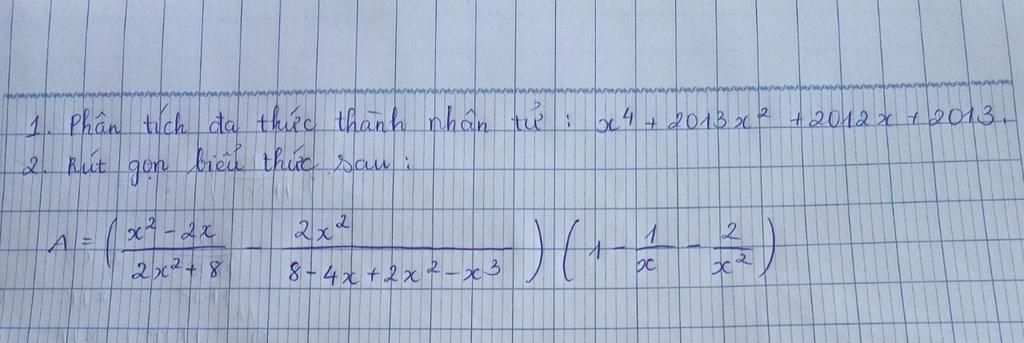 1. Phân tích đa thức thành nhân tử : x⁴ + 2013x² + 2012x + 2013.
2. Rút gọn biểu thức sau :
A = ( (x² - 2x)/(2x² + 8) - (2x²)/(8 - 4x + 2x² - x³) ) ( 1 - 1/x - 2/x² )